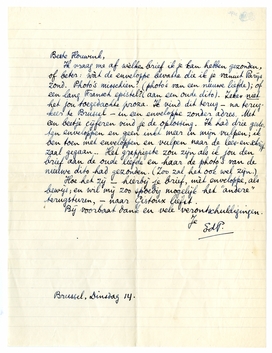 Beste Houwink,
Ik vraag me af welke brief ik je kan hebben gezonden,
of beter: wat de enveloppe bevatte die ik je vanuit Parijs
zond. Photo's misschien? (photo's van een nieuwe liefde); of
een lang Fransch epistel, aan een oude dito). Zeker niet
het jou toegedachte proza. Ik vind dit terug – na terug-
keer te Brussel – in een enveloppe zonder adres. Met
een beetje cijferen vind je de oplossing. Ik had drie gele
enveloppen en geen inkt meer in mijn vulpen; ik
ben toen met enveloppen en vulpen naar de lees-en-schrijf-
zaal gegaan.. Het grappigste zou zijn als ik jou den
brief aan de oude liefde en haar de photo's van de
nieuwe dito had gezonden. (Zoo zal het ook wel zijn.)
Hoe het zij – hierbij je brief, mèt enveloppe, als
bewijs; en wil mij zoo spoedig mogelijk het "andere"
terugsturen, – naar Gistoux liefst.
Bij voorbaat dank en vele verontschuldigingen.
Je
EdP.
Brussel, Dinsdag